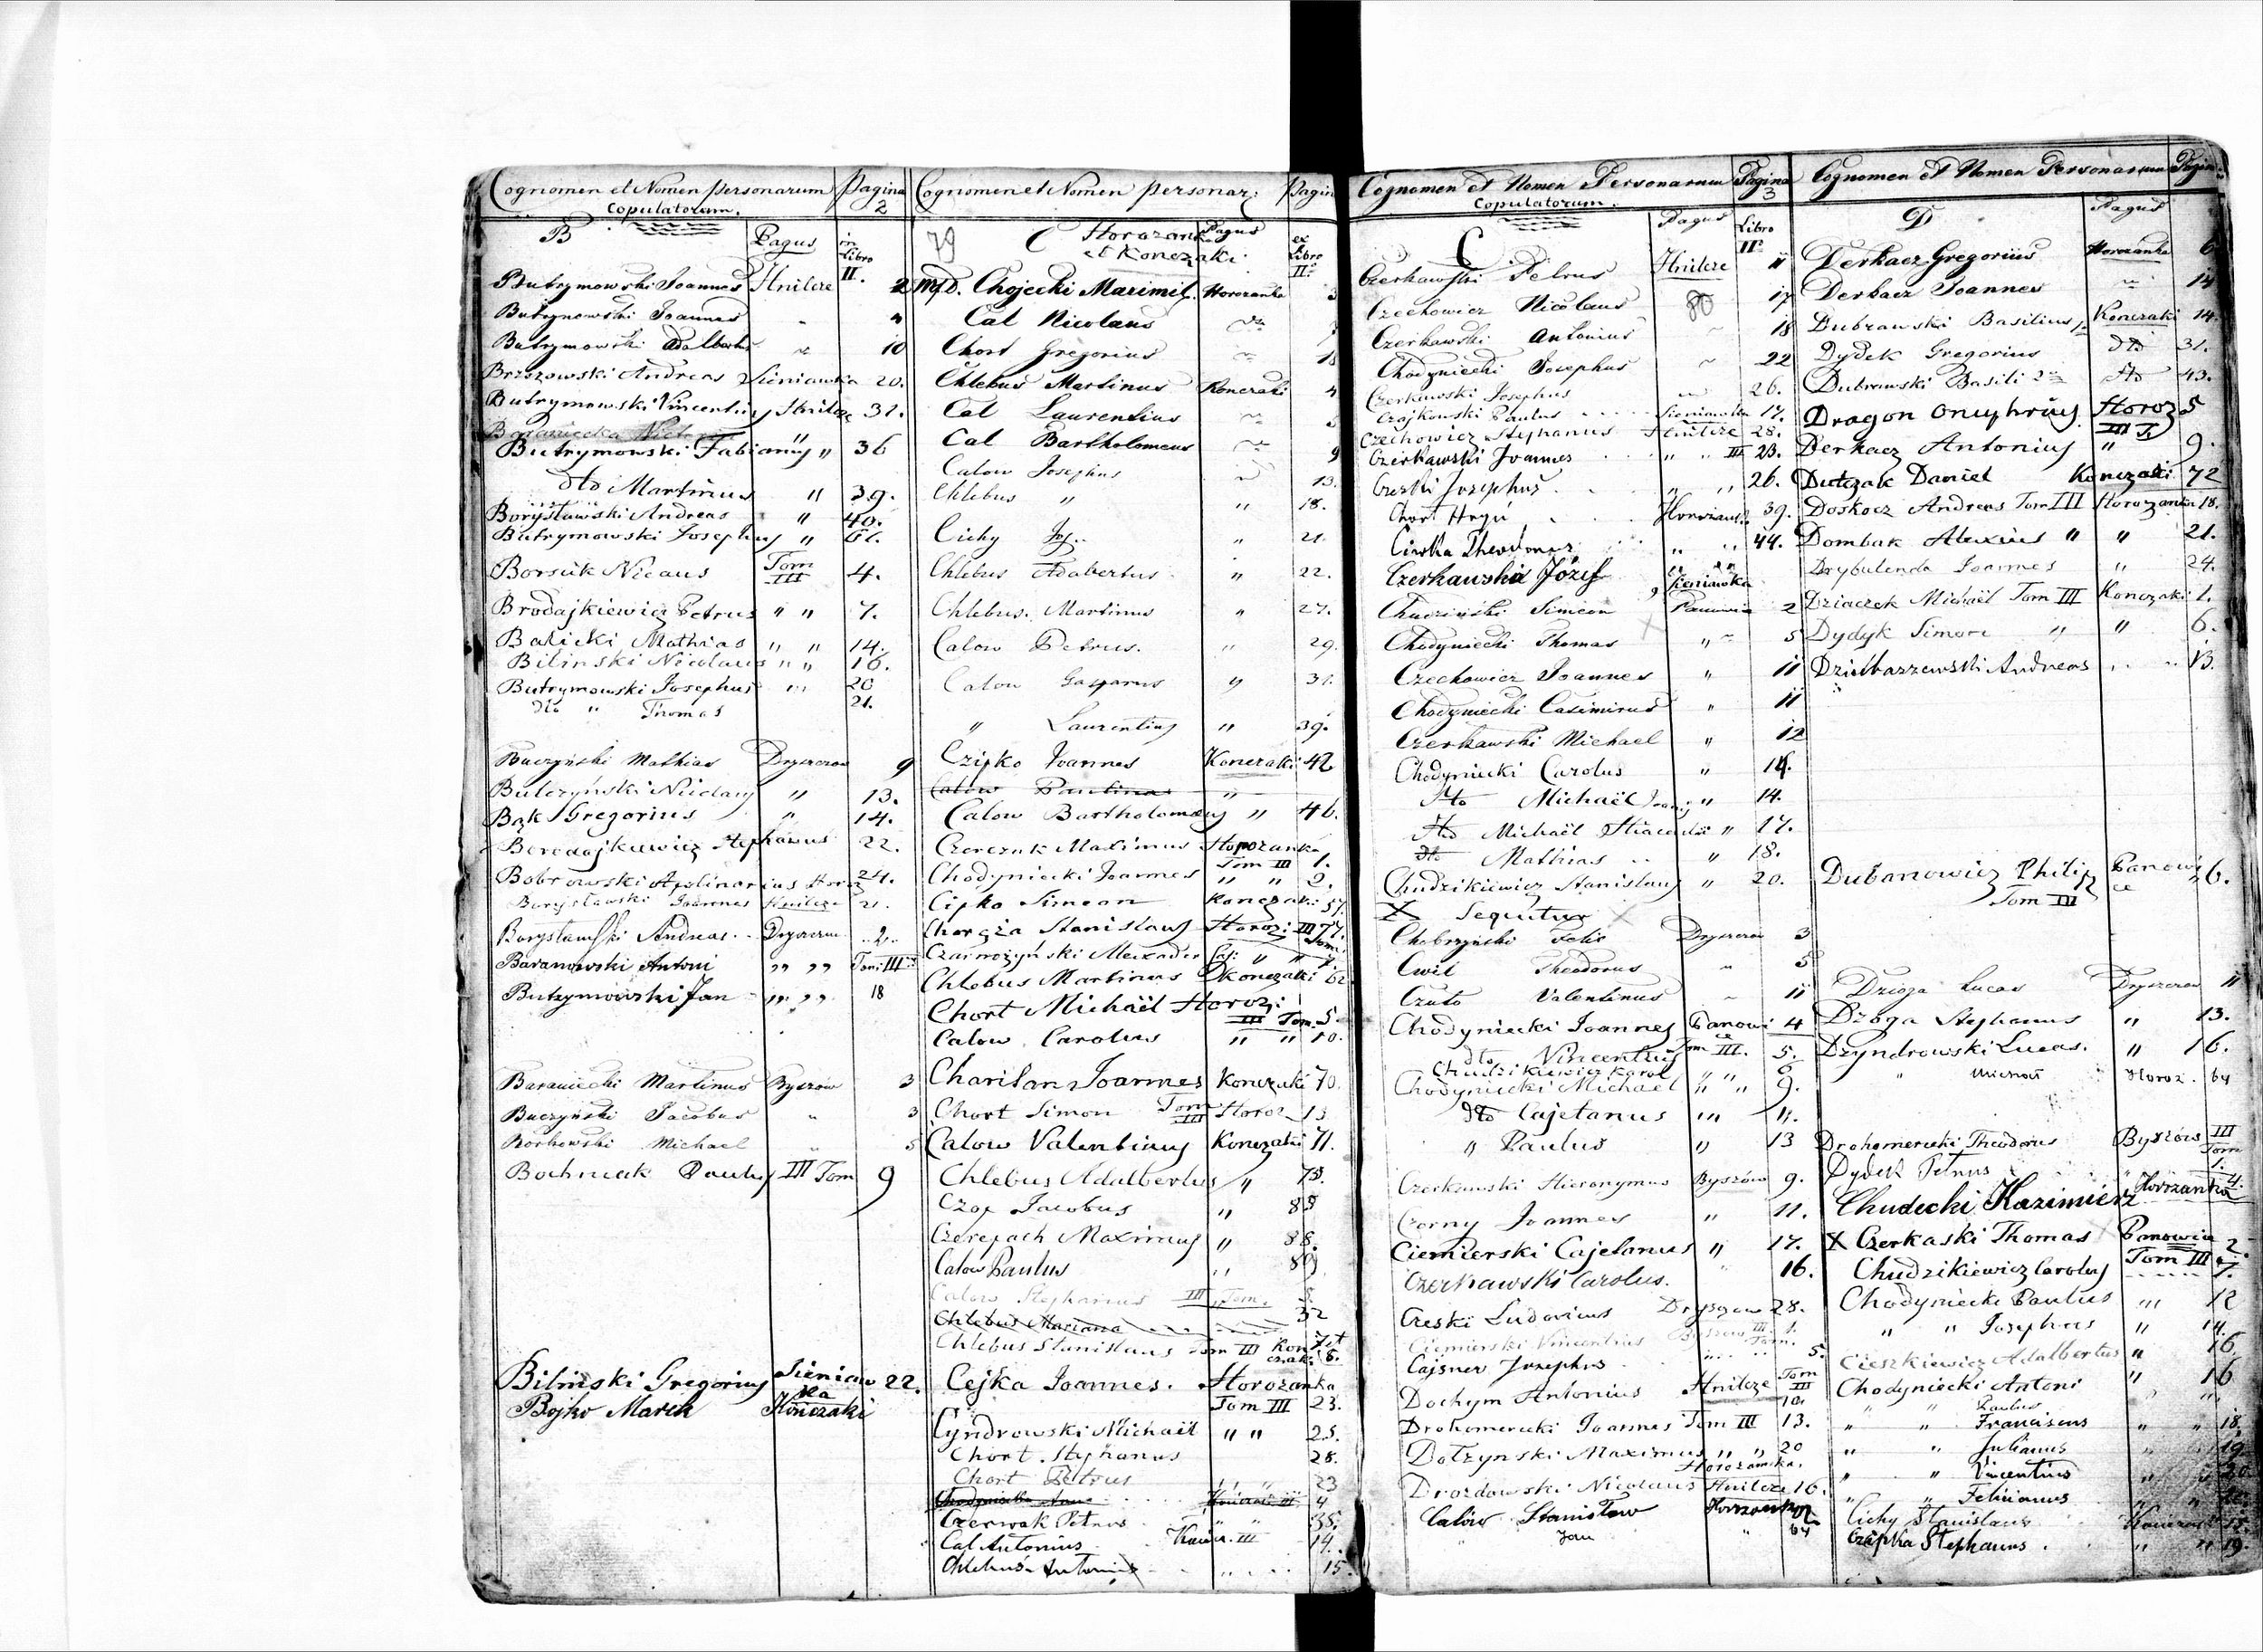 Cognomen et Nomen personarum Pagina
Copulatorum. 2
B Pagus in Libro II.
Butrymowski Joannes Hnilcze 2
Butrymowski Joannes 4
Butrymowski Adalbertus 10
Brzozowski Andreas Sieniawka 20.
Butrymowski Vincentius Hnilcze 31.
Butrymowski Fabianus " 36
dto Martinus " 39.
Borysławski Andreas " 40.
Butrymowski Josephus " 61.
Borsuk Nicaus Tom III 4.
Brodajkiewicz Petrus " " 7.
Balicki Mathias " " 14.
Bilinski Nicolaus " " 16.
Butrymowski Josephus " " 20
dto " Thomas 21.
Buczyński Mathias Dryszczow 9
Bulczyński Nicolaus " 13.
Bąk Gregorius " 14.
Borodajkiewicz Stephanus 22.
Bobrowski Apolinarius Horoz 24.
Borysławski Joannes Hnilcze 21.
Borysławski Andreas Dryszczow 2.
Baranowski Antoni " " Tom III
Butrymowski Jan " " 18
Baraniecki Martinus Byszów 3
Buczyński Jacobus " 3
Borkowski Michael " 5
Bochniak Paulus III Tom 9
Biliński Gregorius Sieniawka 22.
Bojko Marek Kończaki
Cognomen et Nomen personar: Pagin
79 C Horozanka et Konczaki Pagus ex Libro II
Chojecki Maximil. Horozanka 3
Cal Nicolaus
Chort Gregorius 18
Chlebus Martinus Konczaki 4
Cal Laurentius
Cal Bartholomeus 9
Calow Josephus 13.
Chlebus " " 18.
Cichy Jos. " 21
Chlebus Adabertus " 22.
Chlebus. Martinus " 27.
Calow Petrus. " 29.
Calow Gasparus " 31.
" Laurentius " 39.
Czipko Joannes Konczaki 42
Calow Paulina "
Calow Bartholomeus " 46.
Czerczuk Maximus Horozanka
Chodyniecki Joannes Tom III 1. " " 2.
Cipko Simeon Konczaki 57.
Chorąża Stanislaus Horoz: III 77.
Czarnożyński Alexander
Chlebus Martinus Konczaki 62
Chort Michaël Horoz:
III Tom. 5.
Calow Carolus " " 10.
Charitan Joannes Konczaki 70.
Chort Simon Tom III Horoz 13
Calow Valentinus Konczaki 71.
Chlebus Adalbertus " 73.
Czop Jacobus " 85
Czerepach Maximus " 88.
Calow Paulus " 89.
Calow Stephanus III Tom.
Chlebus Mariana 32
Chlebus Stanislaus Tom III Konczaki
Cejka Joannes. Horozanka
Tom III 23.
Cyndrowski Michaël " " 25.
Chort Stephanus 28.
Chort Petrus 23
Czerwak Petrus 35.
Cal Antonius Kończ. III 14.
Chlebus Antonius 15.
Cognomen et Nomen Personarum Pagina
Copulatorum. 3
C Pagus Libro II
Czerkawski Petrus Hnilcze 11
Czechowicz Nicolaus 80 17
Czerkawski Antonius 18
Chodyniecki Josephus 22
Czerkowski Josephus 26.
Czajkowski Paulus Sieniawka 17.
Czechowicz Stephanus Hnilcze 28.
Czerkawski Joannes " " III 23.
Czeski Josephus " " 26.
Chort Hryń Horozanka 39.
Ciwka Theodorus " " 44.
Czerkawski Józef Sieniawka
Chudziński Simeon Panowice 2
Chodyniecki Thomas " 5
Czechowicz Joannes " 11
Chodyniecki Casimirus " 11
Czerkawski Michael " 12
Chodyniecki Carolus " 14.
dto Michaël " 14.
dto Michaël " 17.
dto Mathias " 18.
Chudzikiewicz Stanislaus " 20.
X Sequitur X
Chobrzyński Felix Dryszczow 3
Cwil Theodorus " 5
Czuto Valentinus 11
Chodyniecki Joannes Panowice 4
dto Vincentius Tom III. 5.
Chudzikiewicz Karol " " 6
Chodyniecki Michael " " 9.
dto Cajetanus " " 11.
" Paulus " 13
Czerkawski Hieronymus Byszów 9.
Czorny Joannes " 11.
Ciemierski Cajetanus " 17.
Czerkawski Carolus. " 16.
Czeski Ludovicus Dryszczow 28.
Ciemierski Vincentius Byszow III Tom. 1.
Cajsner Josephus 5.
Dochym Antonius Hnilcze Tom III 10.
Drohomerecki Joannes Tom III 13.
Dołzynski Maximus " " 20
Horozanka.
Drozdowski Nicolaus Hnilcze 16.
Calów Stanisław Horozanka
" Jan " 64
Cognomen et Nomen Personarum Pagin
D Pagus
Derkacz Gregorius Horozanka 6
Derkacz Joannes 14
Dubrawski Basilius Konczaki 14.
Dydek Gregorius dto 31.
Dubrawski Basili dto 43.
Dragon Onuphrius Horoz 5
III T.
Derkacz Antonius " 9.
Dutczak Daniel Konczaki 72
Doskocz Andreas Tom III Horozanka 18.
Dombak Alexius " " 21.
Drybulenda Joannes " 24.
Dziaczek Michaël Tom III Konczaki 1.
Dydyk Simon " " 6.
Andreas 13.
Dubanowicz Philip Panowice 6.
Tom III
Dzioga Lucas Dryszczow 11
Dzoga Stephanus " 13.
Dzyndrowski Lucas. " 16.
" Michał Horoz. 64
Drohomerecki Theodorus Byszów III Tom
Dydek Petrus 1.
Chudecki Kazimierz Horozanka
X Czerkaski Thomas Panowice 2.
Chudzikiewicz Carolus Tom III 7.
Chodyniecki Paulus " 12
" " Josephus " 14.
Cieszkiewicz Adalbertus " 16
Chodyniecki Antoni " 16
" " Paulus
" " Franciscus " " 18.
" " Julianus 19
" " Vincentius 20
" " Felicianus
Cichy Stanislaus
Czipka Stephanus. " " 19.